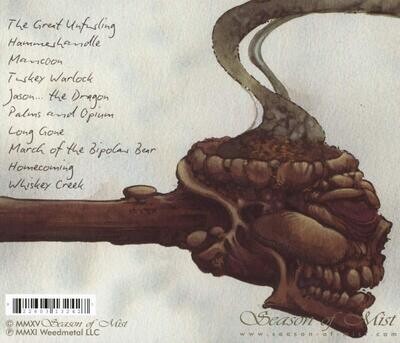 The Great Unfurling
Hammershandle
Mancoon
Turkey Warlock
Jason... the Dragon
Palms and Opium
Long Gone
March of the Bipolar Bear
Homecoming
Whiskey Creek
© MMXV Season of Mist
℗ MMXI Weedmetal LLC
Season of Mist